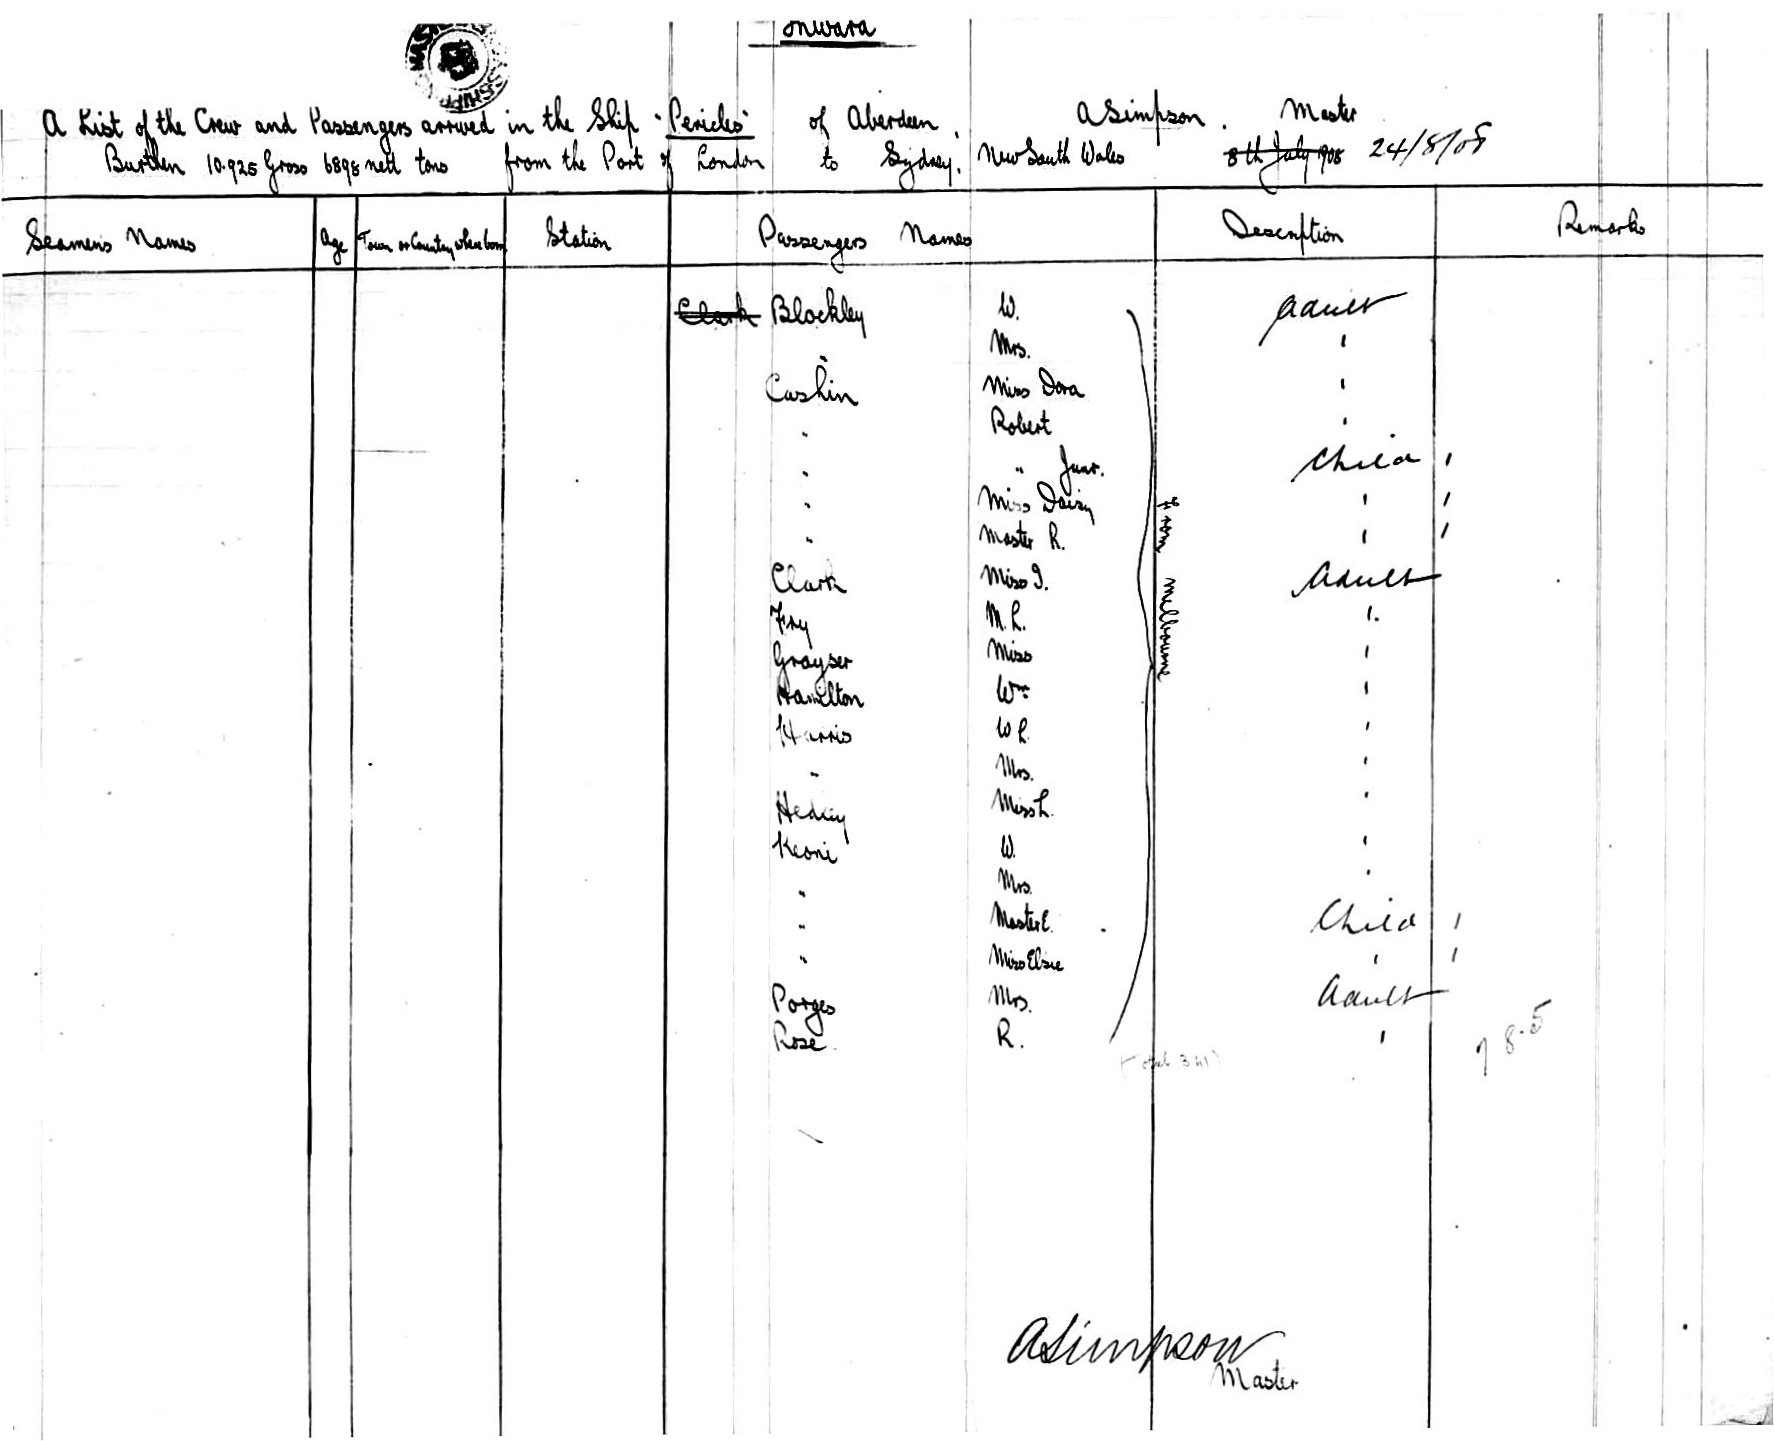 onward
A List of the Crew and Passengers arrived in the Ship "Pericles" of Aberdeen, A Simpson. Master
Burthen 10.925 Gross 6898 nett tons from the Port of London to Sydney, New South Wales 8th July 1908 24/8/08
Seamens Names Age Town or Country where born Station Passengers Names Description Remarks
Clark Blockley W. Adult
" Mrs. '
Cashin Miss Dora '
" Robert '
" " Junr. Child '
" Miss Daisy ' '
" Master R. ' '
Clark Miss I. Adult
Fry M. L. '
Grayser Miss '
Hamilton Wm '
Harris W L. '
" Mrs. '
Miss L. '
W. '
" Mrs. '
" Master E. Child '
" Miss Elsie ' '
Porges Mrs. Adult
Rose R. '
from Melbourne
8.5
A Simpson
Master